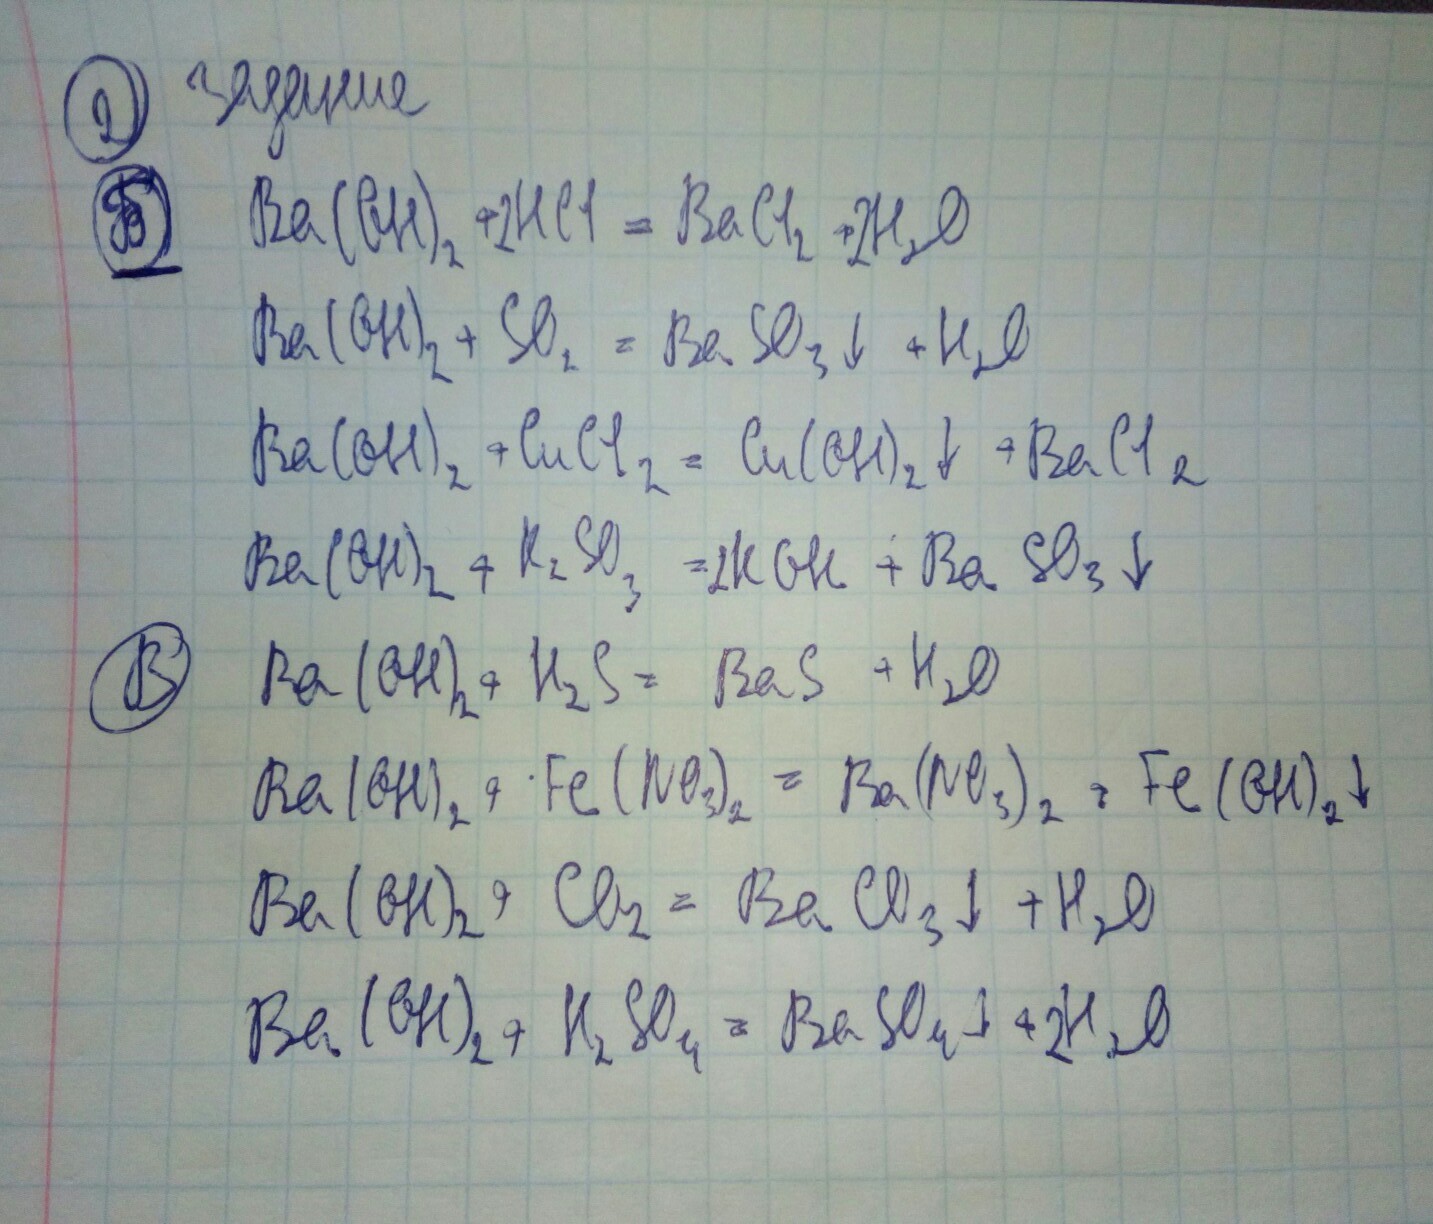 2 задание
Б Ba(OH)₂ + 2HCl = BaCl₂ + 2H₂O
Ba(OH)₂ + SO₂ = BaSO₃↓ + H₂O
Ba(OH)₂ + CuCl₂ = Cu(OH)₂↓ + BaCl₂
Ba(OH)₂ + K₂SO₃ = 2KOH + BaSO₃↓
В Ba(OH)₂ + H₂S = BaS + H₂O
Ba(OH)₂ + Fe(NO₃)₂ = Ba(NO₃)₂ + Fe(OH)₂↓
Ba(OH)₂ + CO₂ = BaCO₃↓ + H₂O
Ba(OH)₂ + H₂SO₄ = BaSO₄↓ + 2H₂O